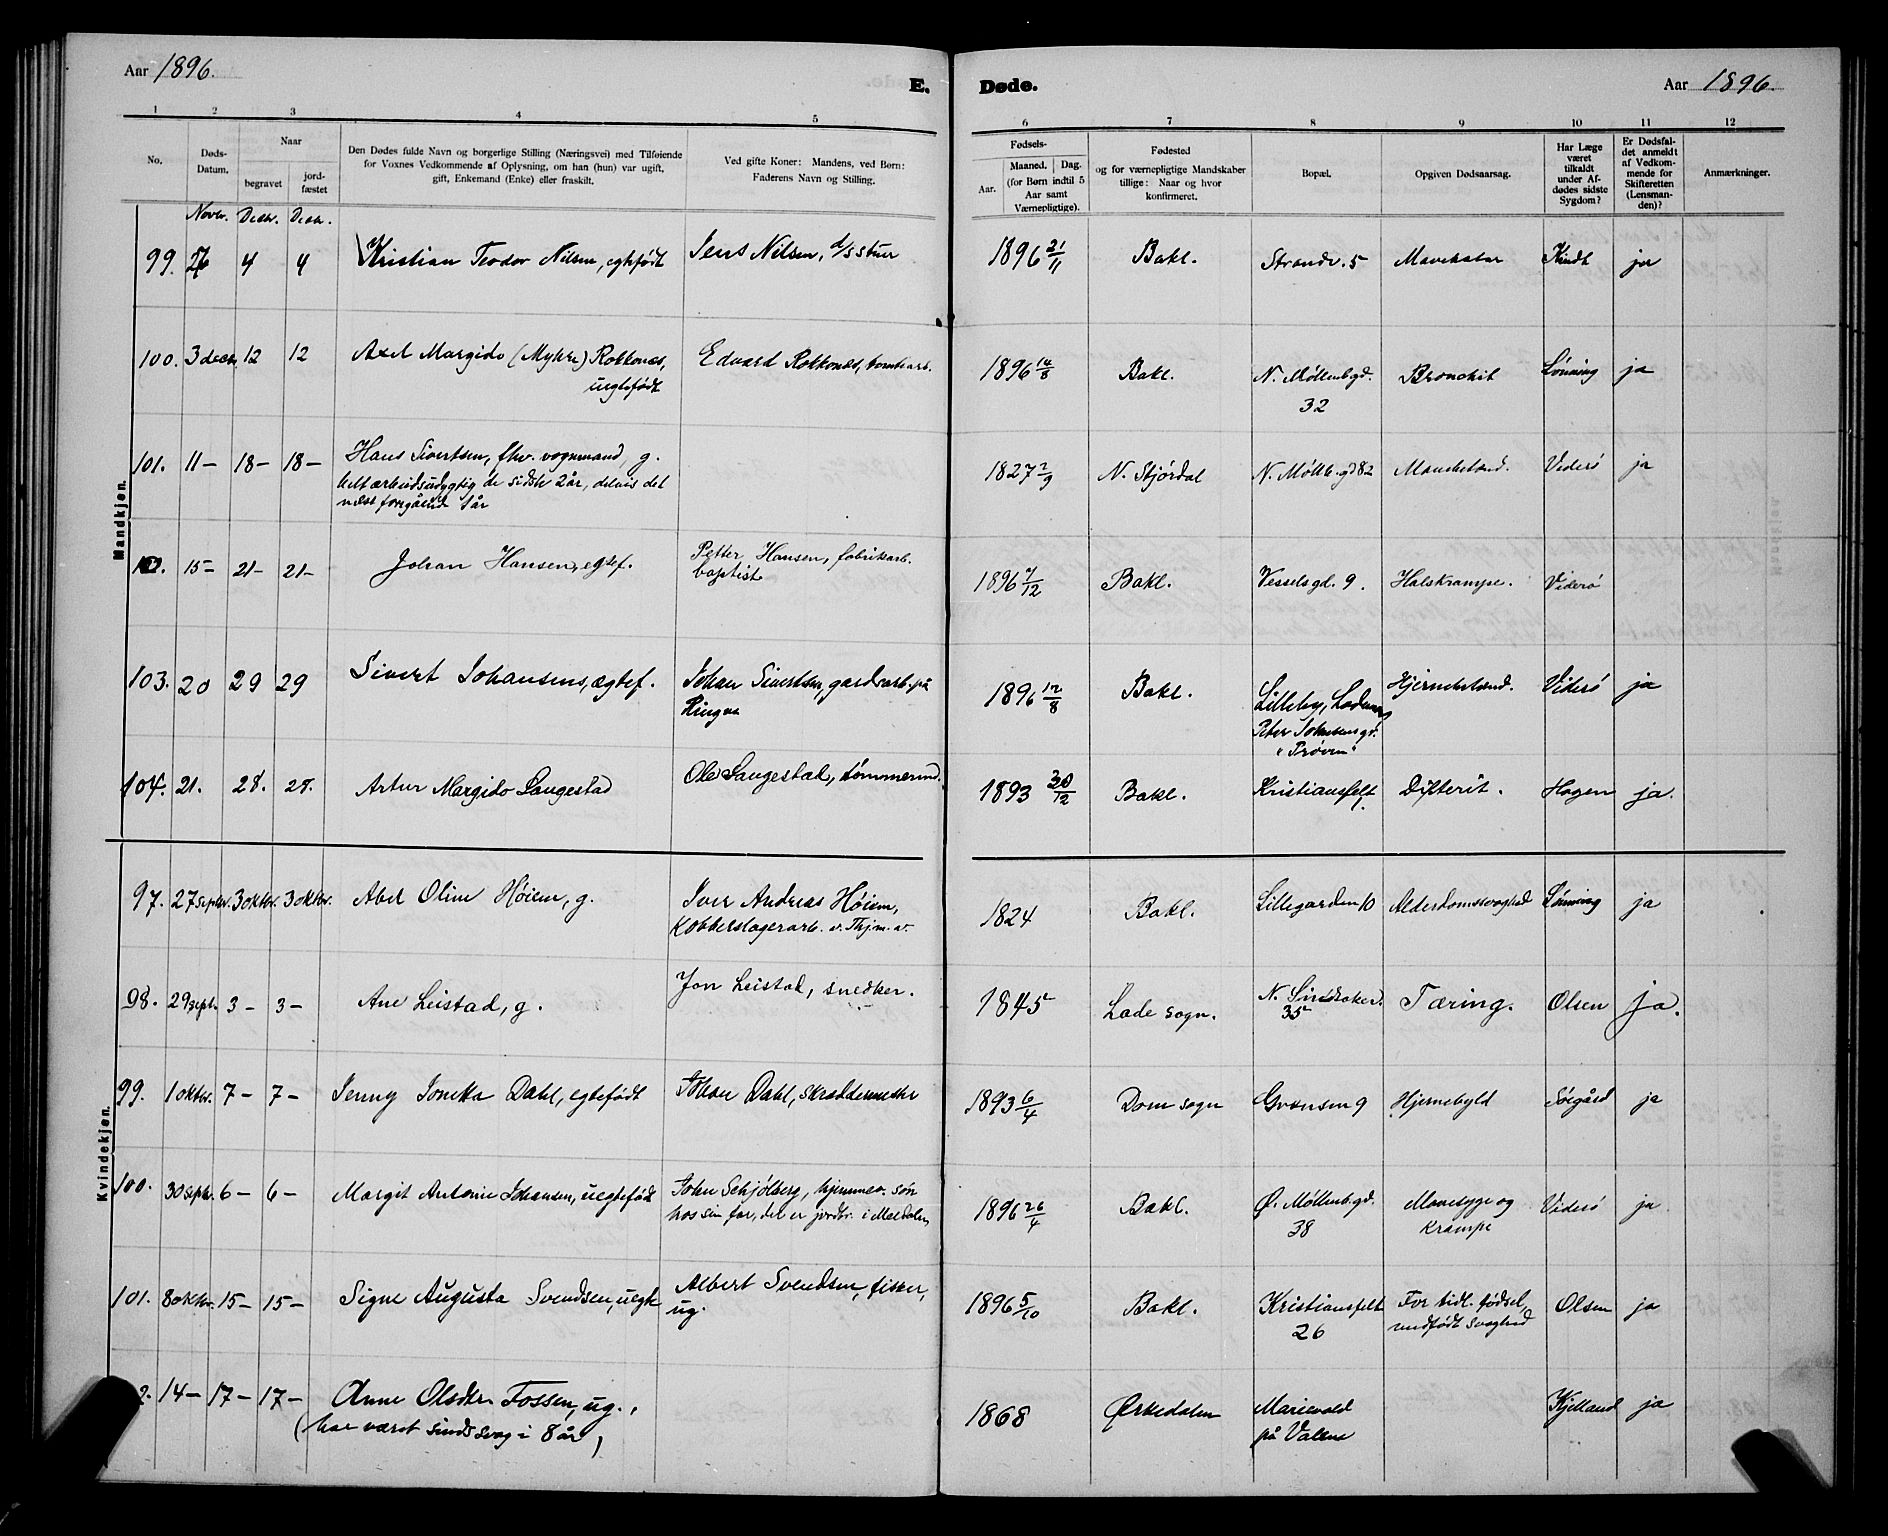 Aar 1896.
E. Døde.
Aar 1896.
1 2 3 4 5 6 7 8 9 10 11 12
No.
Døds-
Datum.
Naar
begravet
jord-
fæstet
Den Dødes fulde Navn og borgerlige Stilling (Næringsvei) med Tilføiende
for Voxnes Vedkommende af Oplysning, om han (hun) var ugift,
gift, Enkemand (Enke) eller fraskilt.
Ved gifte Koner: Mandens, ved Børn:
Faderens Navn og Stilling.
Fødsels-
Aar.
Maaned. Dag.
(for Børn indtil 5
Aar samt
Værnepligtige).
Fødested
og for værnepligtige Mandskaber
tillige: Naar og hvor
konfirmeret.
Bopæl.
Opgiven Dødsaarsag.
Har Læge
været
tilkaldt
under Af-
dødes sidste
Sygdom?
Er Dødsfal-
det anmeldt
af Vedkom-
mende for
Skifteretten
(Lensman-
den)?
Anmærkninger.
Mandkjøn.
Novbr. Decbr. Decbr.
99. 26 4 4 Kristian Teodor Nilsen, egtefødt Jens Nilsen, 1896 21/11 Bakl. Strandv. 5 Mavekatar Kindt ja
100. 3 decbr. 12 12 Axel Margido (Myhre) Rokkones, Edvard Rokkones, tomtearb. 1896 14/8 Bakl. N. Møllenbgd. Bronchit Lønning ja
uegtefødt
32
101. 11 – 18 – 18 – Hans Sivertsen, fhv. vognmand, g. 1827 2/9 N. Stjørdal N. Møllb. gd 82 Viderø ja
helt arbeidsudygtig de sidste 2 år, delvis det
næst foregående 1 år
102. 15 – 21 – 21 – Johan Hansen, egtef. Petter Hansen, fabrikarb. 1896 7/12 Bakl. Vesselsgd. 9. Halskrampe. Viderø
baptist
103. 20 29 29 Sivert Johansens, ægtef. Johan Sivertsen, gardsarb. på 1896 12/8 Bakl. Lilleby, Hjernebetænd. Viderø ja
Ringve
"Prøven"
104. 21. 28. 28. Artur Margido Langestad Ole Langestad, tømmermd. 1893 30/12 Bakl. Kristiansfelt Difterit. Hagen ja.
1.
Kvindekjøn.
97. 27 septbr. 3 oktbr. 3 oktbr. Abel Oline Høiem, g. Iver Andreas Høiem, 1824 Bakl. Lillegarden 10 Alderdomssvaghed Lønning ja
Kobberslagerarb. v. Thjm. v.
98. 29 septb. 3 – 3 – Ane Leistad, g. Jon Leistad, snedker. 1845 Lade sogn. N. Singsakerd. Tæring. Olsen ja.
35
99. 1 oktbr. 7 – 7 – Jenny Jonetta Dahl, egtefødt Johan Dahl, skræddermester 1893 6/4 Dom sogn Grænsen 9 Hjernebyld Søegård ja
100. 30 septb. 6 – 6 – Margit Antonie Johansen, uegtefødt John Schjølberg, hjemmev. søn 1896 26/4 Bakl. Ø. Møllenbgd. Mavesyge og Viderø ja
hos sin far, der er jordbr. i Meldalen
38
krampe
101. 8 oktbr. 15 – 15 – Signe Augusta Svendsen, uegte Albert Svendsen, fisker, 1896 5/10 Bakl. Kristiansfelt For tidl. fødsel, Olsen ja
ug.
26
medfødt svaghed
14 – 17 – 17 – Anne Olsdtr. Fossen, ug., 1868 Ørkedalen Marievold Kjelland ja
(har været sindssvag i 8 år)
på Valene